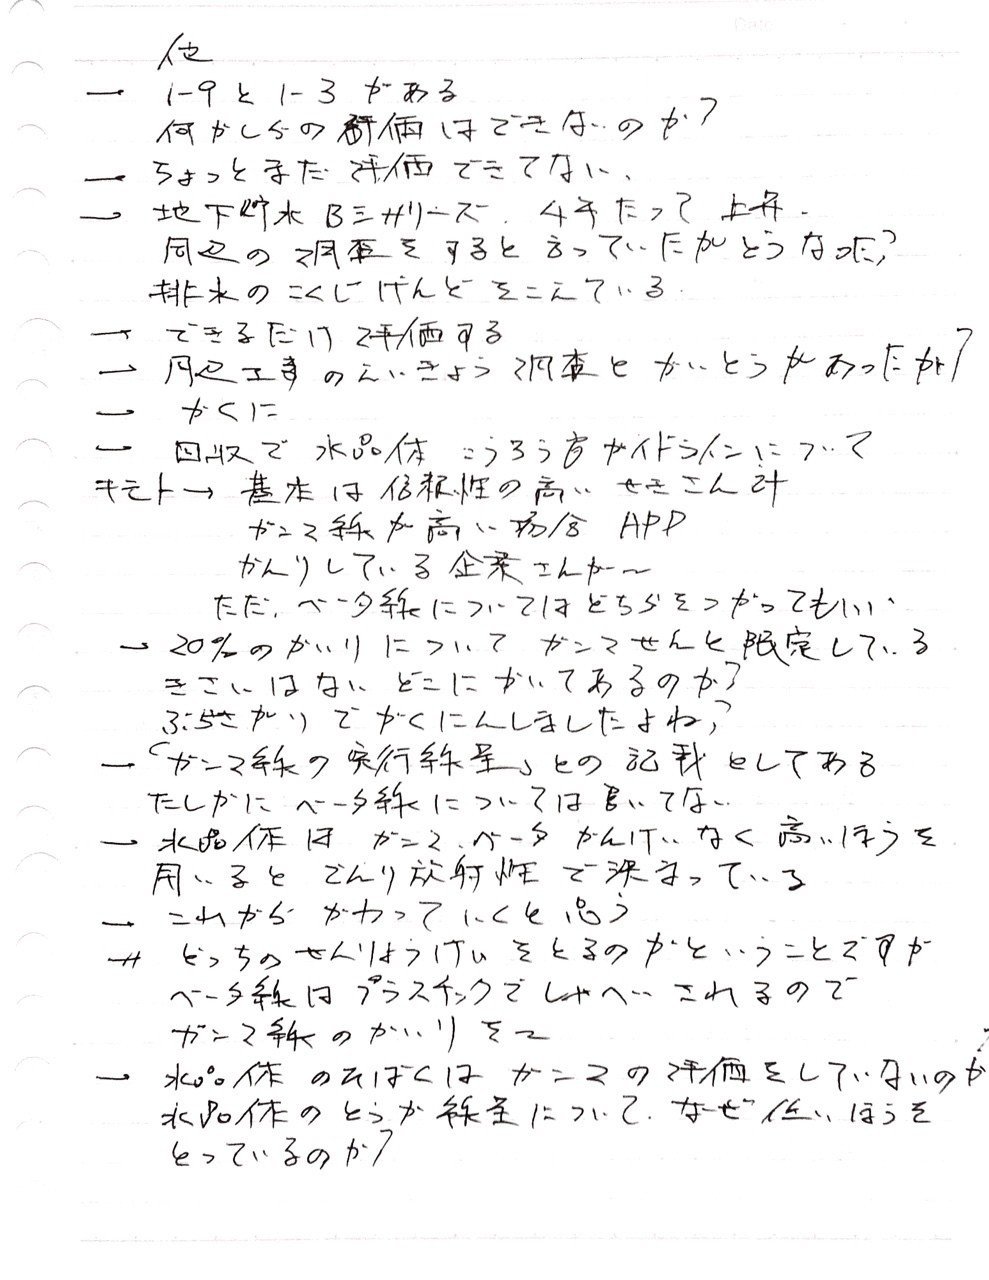 他
→ 1-9と1-3がある
何かしらの評価はできないのか?
→ ちょっとまだ評価できてない、
→ 地下貯水 B 4年たって上昇.
周辺の調査をすると言っていたがどうなった?
排水のこくじげんどをこえている.
→ できるだけ評価する
→ 周辺工事のえいきょう調査とかいとうがあったが?
→ かくに
→ 回収で水晶体 ガイドラインについて
→ 基本は信頼性の高いせきさん計
ガンマ線が高い場合 APD
かんりしている企業さんが〜
ただ、ベータ線についてはどちらをつかってもいい
→ 20%のかいりについてガンマせんと限定している
きさいはない どこにかいてあるのか?
ぶらさがりでかくにんしましたよね?
→「ガンマ線の実行線量」との記載としてある
たしかにベータ線については書いてない
→ 水晶体はガンマ、ベータかんけいなく高いほうを
用いると でんり放射性で決まっている
→ これからかわっていくと思う
# どっちのせんりょうけいをとるのかということですが
ベータ線はプラスチックでしゃへいされるので
ガンマ線のかいりを〜
→ 水晶体のひばくはガンマの評価をしていないのか?
水晶体のとうか線量について、なぜ低いほうを
とっているのか?